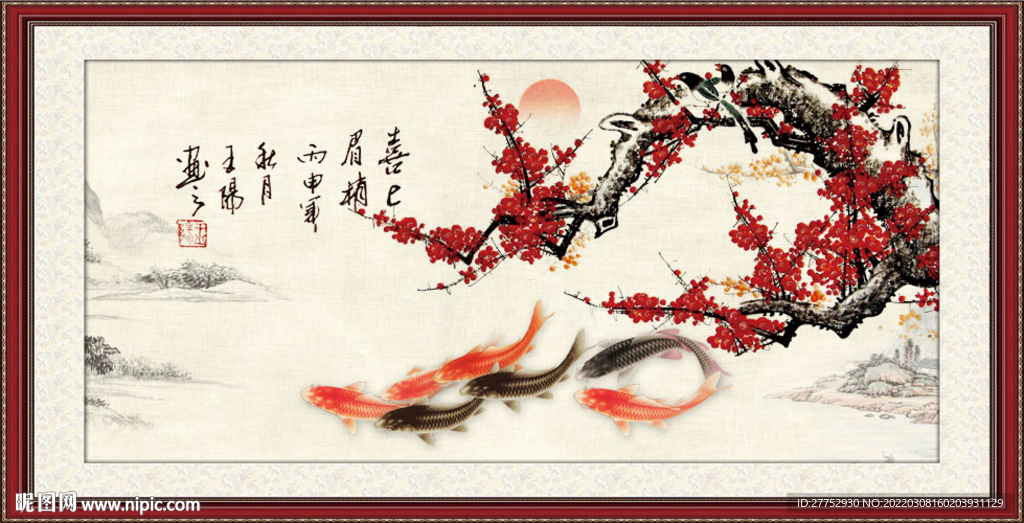 喜上
眉梢
丙申年
秋月
王陽
畫之
昵图网 www.nipic.com
ID:27752930 NO:20220308160203931129